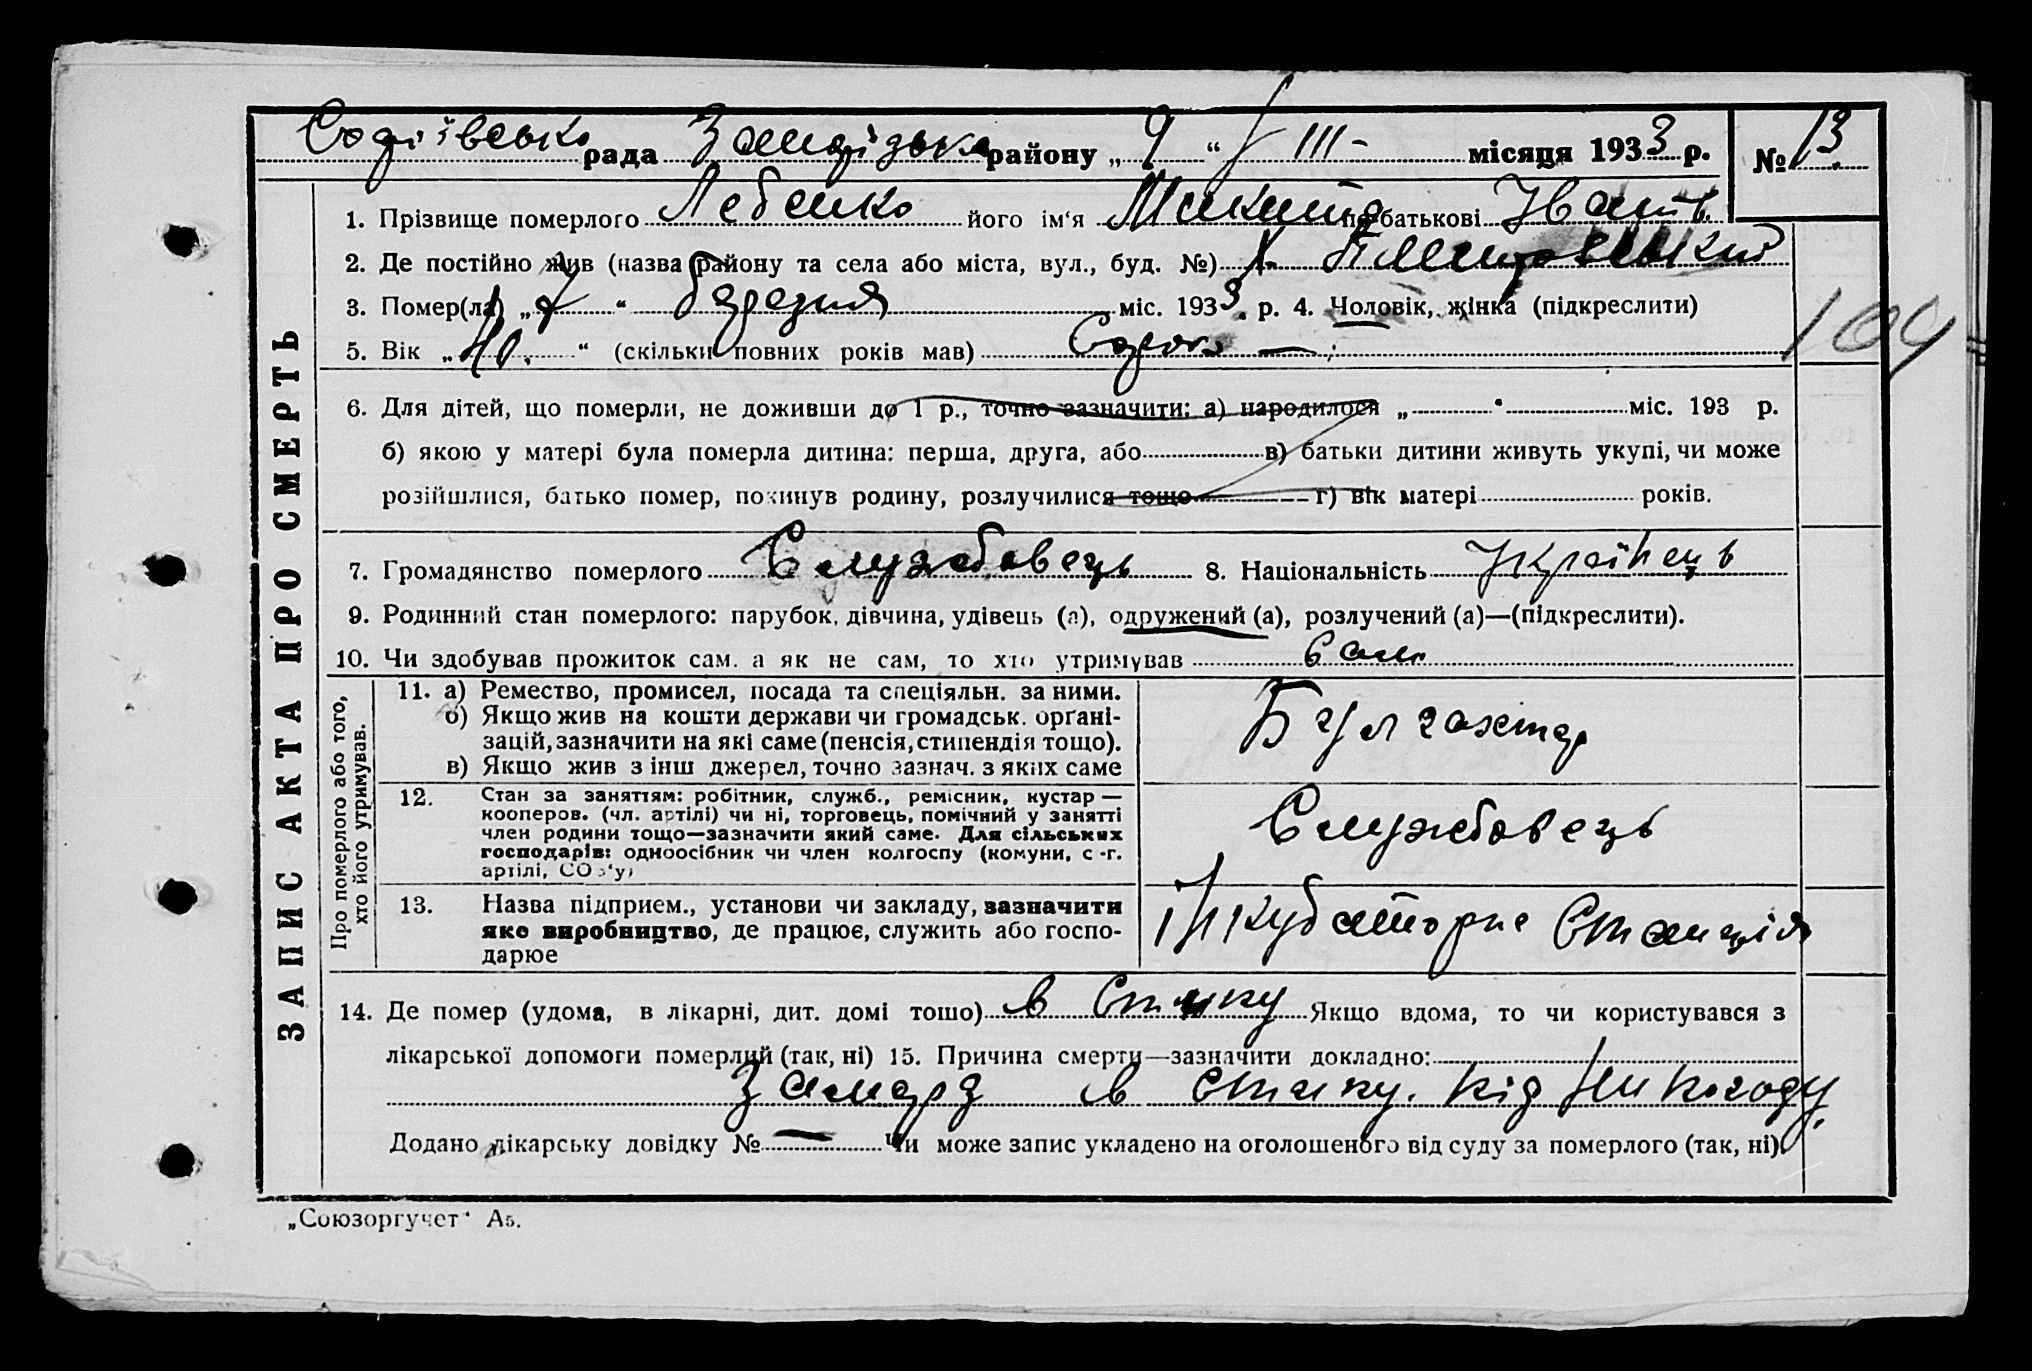 Софіївсько рада Запорізька району „ 9 “ III - місяця 1933 р. № 13.
1. Прізвище померлого Лебенко його ім'я Микита по батькові Іванів.
2. Де постійно жив (назва району та села або міста, вул., буд. №) х.
3. Помер(ла) „ 7 “ березня міс. 1933. р. 4. Чоловік, жінка (підкреслити)
5. Вік „ 40. “ (скільки повних років мав) Сорок —
109
6. Для дітей, що померли, не доживши до 1 р., точно зазначити: а) народилося „ “ міс. 193 р.
б) якою у матері була померла дитина: перша, друга, або в) батьки дитини живуть укупі, чи може
розійшлися, батько помер, покинув родину, розлучилися тощо г) вік матері років.
7. Громадянство померлого Службовець 8. Національність Українець
9. Родинний стан померлого: парубок, дівчина, удівець (а), одружений (а), розлучений (а)—(підкреслити).
10. Чи здобував прожиток сам. а як не сам, то хто утримував Сам
ЗАПИС АКТА ПРО СМЕРТЬ
Про померлого або того,
хто його утримував.
11. а) Ремество, промисел, посада та спеціяльн. за ними.
б) Якщо жив на кошти держави чи громадськ. органі-
зацій, зазначити на які саме (пенсія, стипендія тощо).
в) Якщо жив з інш джерел, точно зазнач. з яких саме
Булгахтер
12. Стан за заняттям: робітник, служб., ремісник, кустар —
кооперов. (чл. артілі) чи ні, торговець, помічний у занятті
член родини тощо—зазначити який саме. Для сільських
господарів: одноосібник чи член колгоспу (комуни, с.-г.
артілі, СОЗ'у)
Службовець
13. Назва підприєм., установи чи закладу, зазначити
яке виробництво, де працює, служить або госпо-
дарює
Інкубаторна Станція
14. Де помер (удома, в лікарні, дит. домі тошо) в Степу Якщо вдома, то чи користувався з
лікарської допомоги померлий (так, ні) 15. Причина смерти—зазначити докладно:
Замерз в степу.
Додано лікарську довідку № — Чи може запис укладено на оголошеного від суду за померлого (так, ні).
„Союзоргучет“ А5.